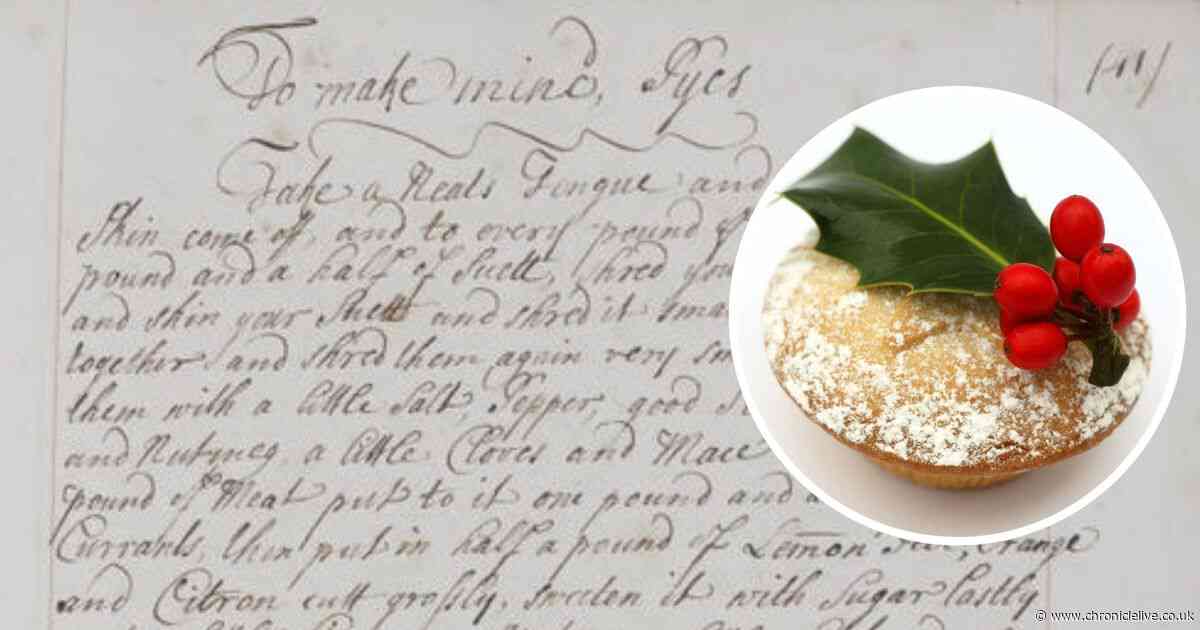 To make minc'd Pyes
(41)
Take a Neats Tongue and
Skin come of, and to every pound of
pound and a half of Suett, shred you
and skin your Suett and shred it sma
together and shred them again very sm
them with a little Salt, Pepper, good
and Nutmeg a little Cloves and Mace
pound of Meat put to it one pound and a
Currants, then put in half a pound of Lemon Orange
and Citron cutt grosly, sweeten it with Sugar lastly
© www.chroniclelive.co.uk